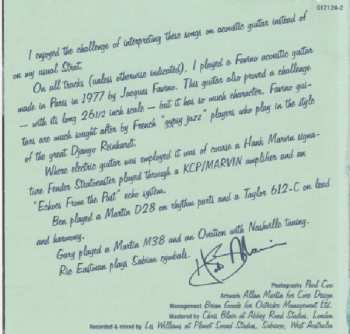 512124-2
I enjoyed the challenge of interpreting these songs on acoustic guitar instead of
on my usual Strat.
On all tracks (unless otherwise indicated), I played a Favino acoustic guitar
made in Paris in 1977 by Jacques Favino. This guitar also proved a challenge
— with its long 26 1/2 inch scale — but it has so much character. Favino gui-
tars are much sought after by French "gypsy jazz" players who play in the style
of the great Django Reinhardt.
Where electric guitar was employed it was of course a Hank Marvin signa-
ture Fender Stratocaster played through a KCP/MARVIN amplifier and an
"Echoes From the Past" echo system.
Ben played a Martin D28 on rhythm parts and a Taylor 612-C on lead
and harmony.
Gary played a Martin M38 and an Ovation with Nashville tuning.
Ric Eastman plays Sabian cymbals.
Hank Marvin
Photography Paul Cox
Artwork Allan Martin for Core Design
Management Brian Goode for Outsider Management Ltd.
Mastered by Chris Blair at Abbey Road Studios, London
Recorded & mixed by Les Williams at Planet Sound Studios, Subiaco, West Australia